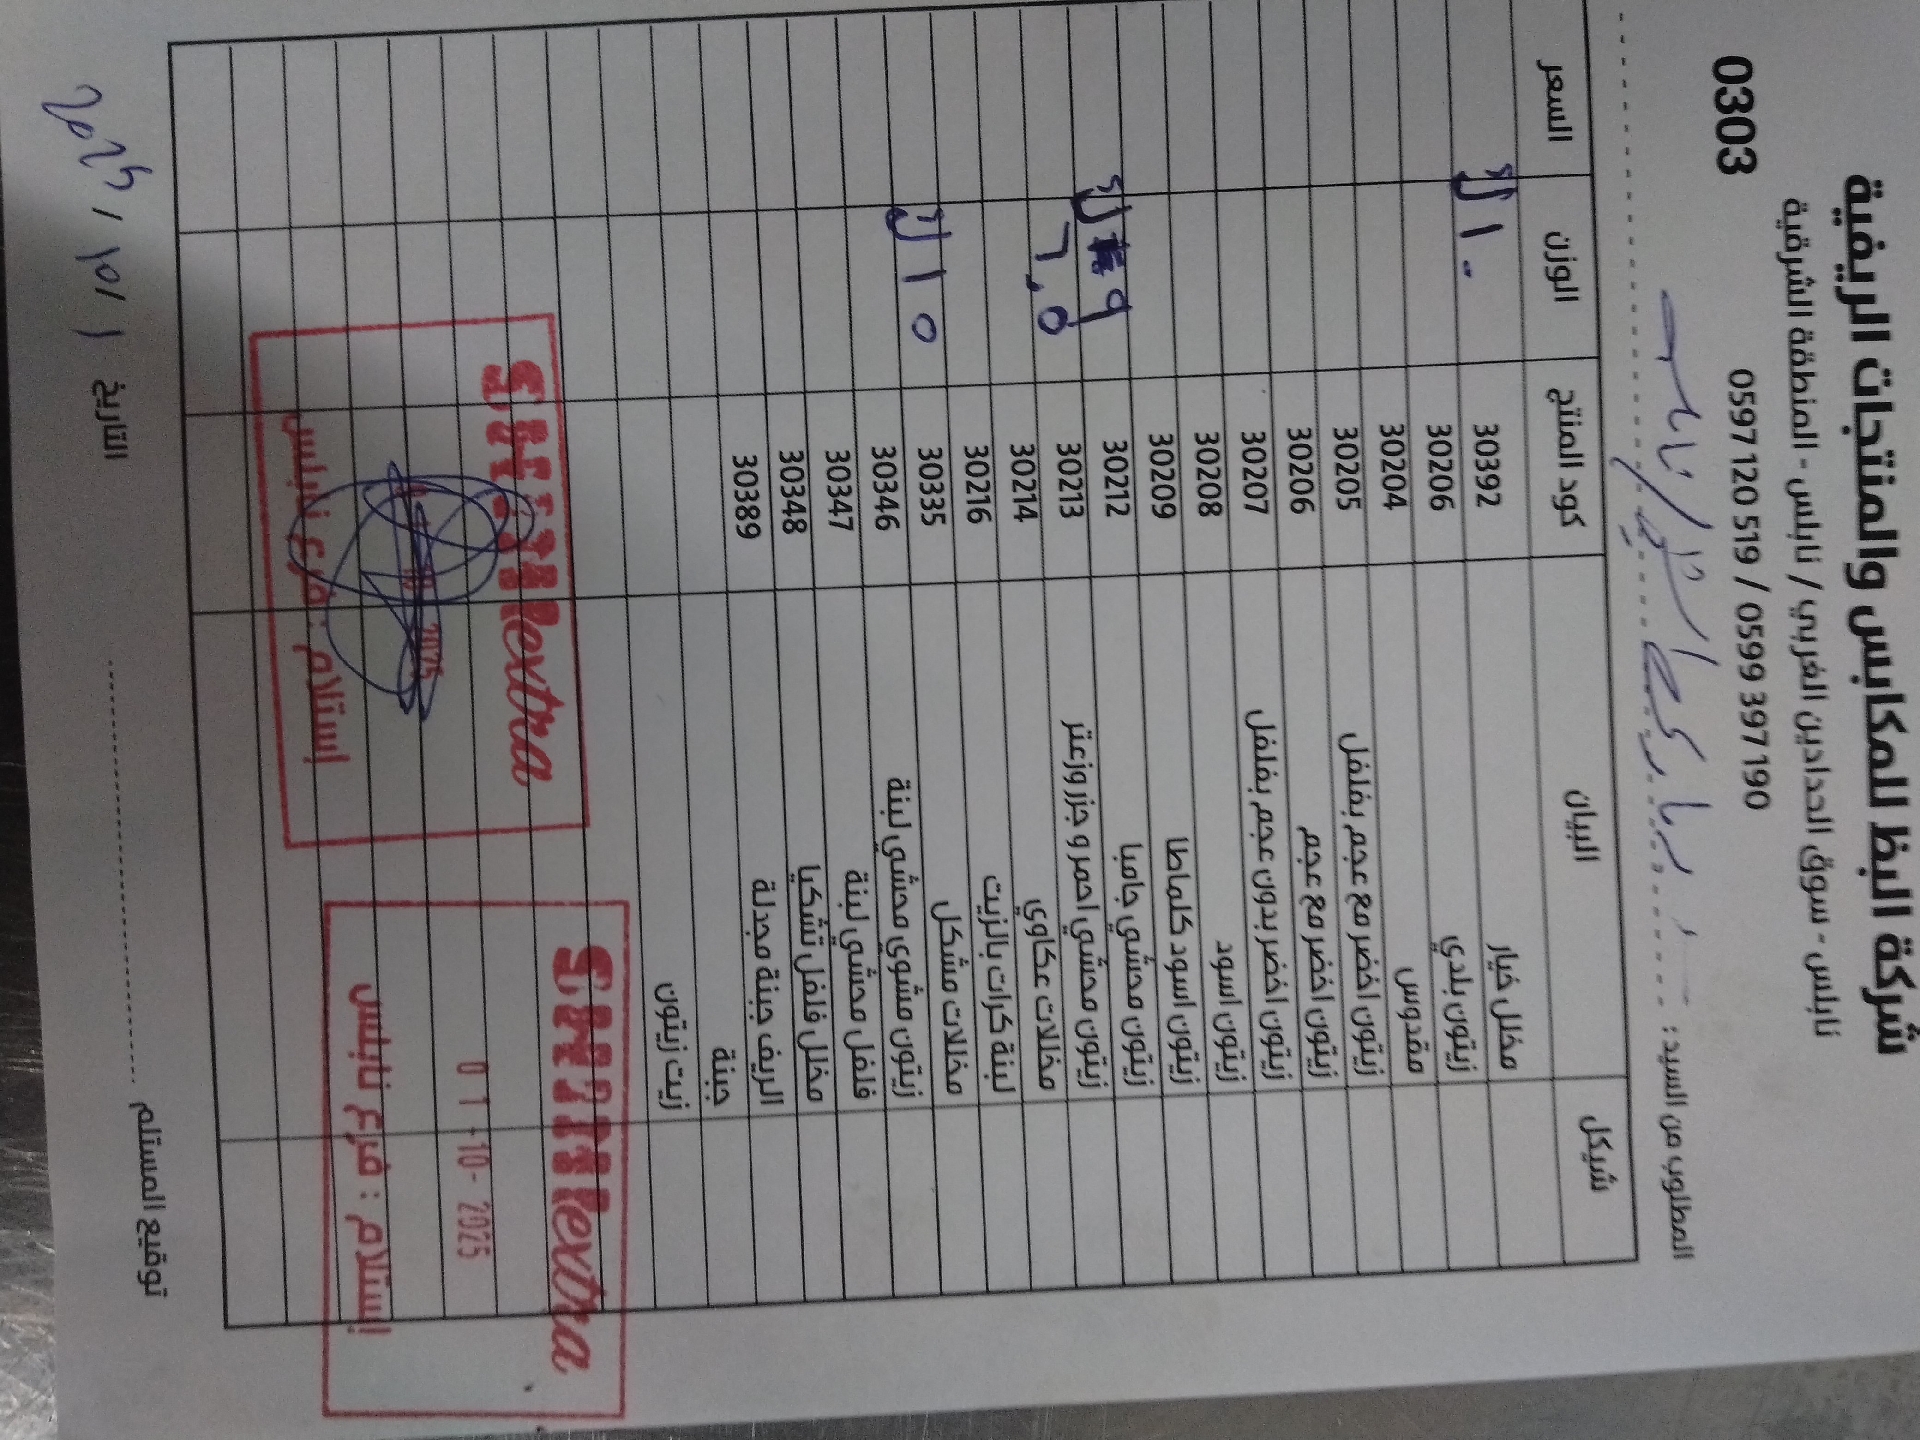 شركة البظ للمكابس والمنتجات الريفية
نابلس - سوق الحدادين الغربي / نابلس - المنطقة الشرقية
0597 120 519 / 0599 397 190
0303
المطلوب من السيد:
شيكل البيان كود المنتج الوزن السعر
مخلل خيار 30392 ١٠
زيتون بلدي 30206
مقدوس 30204
زيتون اخضر مع عجم بفلفل 30205
زيتون اخضر مع عجم 30206
زيتون اخضر بدون عجم بفلفل 30207
زيتون اسود 30208
زيتون اسود كلماطا 30209
زيتون محشي جامبا 30212 ٩
زيتون محشي احمر و جزر وزعتر 30213 ٦,٥
مخللات عكاوي 30214
لبنة كرات بالزيت 30216
مخللات مشكل 30335 ١٥
زيتون مشوي محشي لبنة 30346
فلفل محشي لبنة 30347
مخلل فلفل تشكيا 30348
الريف جبنة مجدلة 30389
جبنة
زيت زيتون
SHINIextra
2025
إستلام : فرع نابلس
SHINIextra
01-10-2025
إستلام : فرع نابلس
توقيع المستلم
التاريخ ١ / ١٥ /